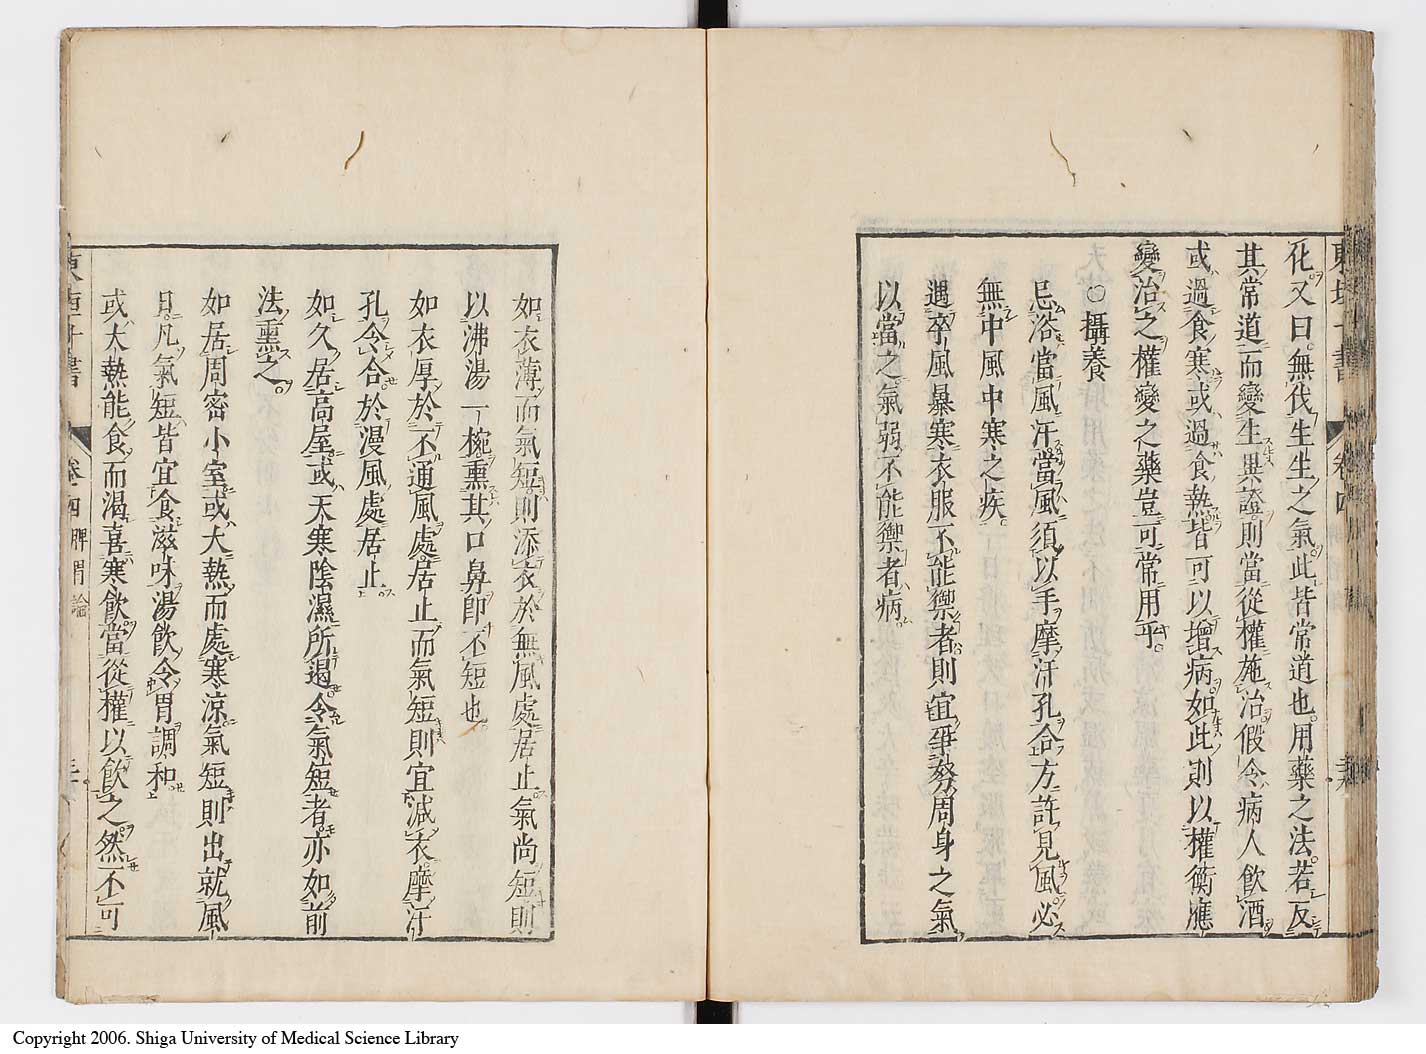 化又曰無伐生生之氣此皆常道也用藥之法若反
其常道而變生異證則當從權施治假令病人飲酒
或過食寒或過食熱皆可以增病如此則以權衡應
變治之權變之藥豈可常用乎
○攝養
忌浴當風汗當風須以手摩汗孔合方許見風必
無中風中寒之疾
遇卒風暴寒衣服不能禦者則宜爭努周身之氣
以當之氣弱不能禦者病
如衣薄而氣短則添衣於無風處居止氣尚短則
以沸湯一椀熏其口鼻即不短也
如衣厚於不通風處居止而氣短則宜減衣摩汗
孔令合於漫風處居止
如久居高屋或天寒陰濕所遏令氣短者亦如前
法熏之
如居周密小室或大熱而處寒涼氣短則出就風
日凡氣短皆宜食滋味湯飲令胃調和
或大熱能食而渴喜寒飲當從權以飲之然不可
卷四 脾胃論
Copyright 2006. Shiga University of Medical Science Library